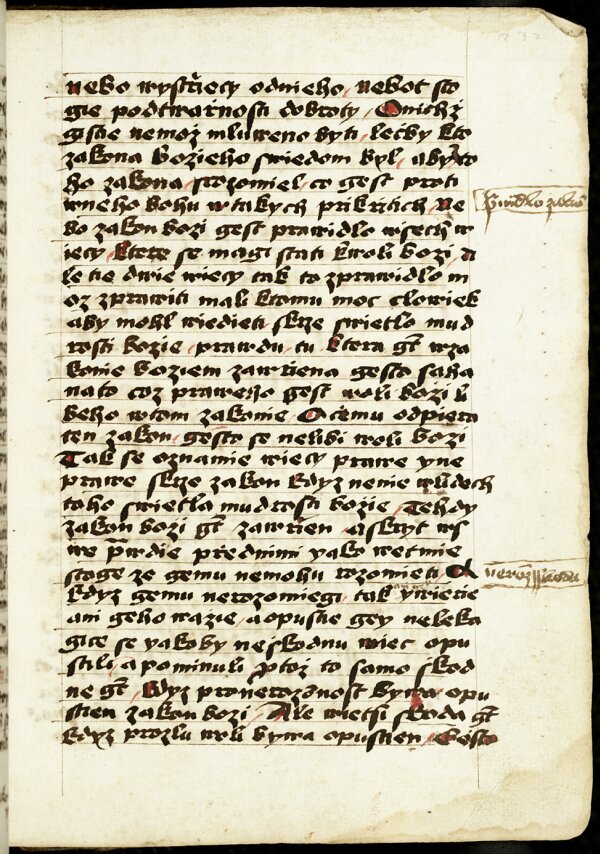 232
nebo wystrziecy odnieho, nebot sto
gie podtwarnosti dobroty, O nichz
gistie nemoz mluweno byti, leczby kto
zakona bozieho swiedom byl, aby to
ho zakona, srozomiel, co gest proti
wneho bohu w takych prikritich, Ne
bo zakon bozi gest prawidlo wsech w
iecy, ktere se magi stati kwoli bozi, A
le tie dwie wiecy tak to zprawidlo m
oz zprawiti, mali ktomu moc clowiek
aby mohl wiedieti skrze swietlo mud
rosti bozie, prawdu, tu, ktera gt wza
konie boziem zawrzena, gesto saha
na to coz praweho gest, woli bozi li
beho wtom zakonie, O cemu odpiera
ten zakon, gesto se nelibi woli bozi
Tak se oznamie wiecy prawe y ne
prawe skrze zakon, kdyz nenie wlidech
toho swietla mudrosti bozie, Tehdy
zakon bozi gt zawrien, a skryt ws
we prwdie przednimi yako wetmie
stoge ze gemu nemohu rozomieti, A
kdyz gemu nerozomiegi, tak ywierie
ani geho wazie, a opustie gey neleka
gice se yakoby neskodnu wiec opu
stili, a pominuli, protoz to samo skod
ne gt, kdyz pronerozomnost bywa opu
stien zakon bozi, Ale wietsi skoda gt
kdyz prozlu woli bywa opustien, Gesto